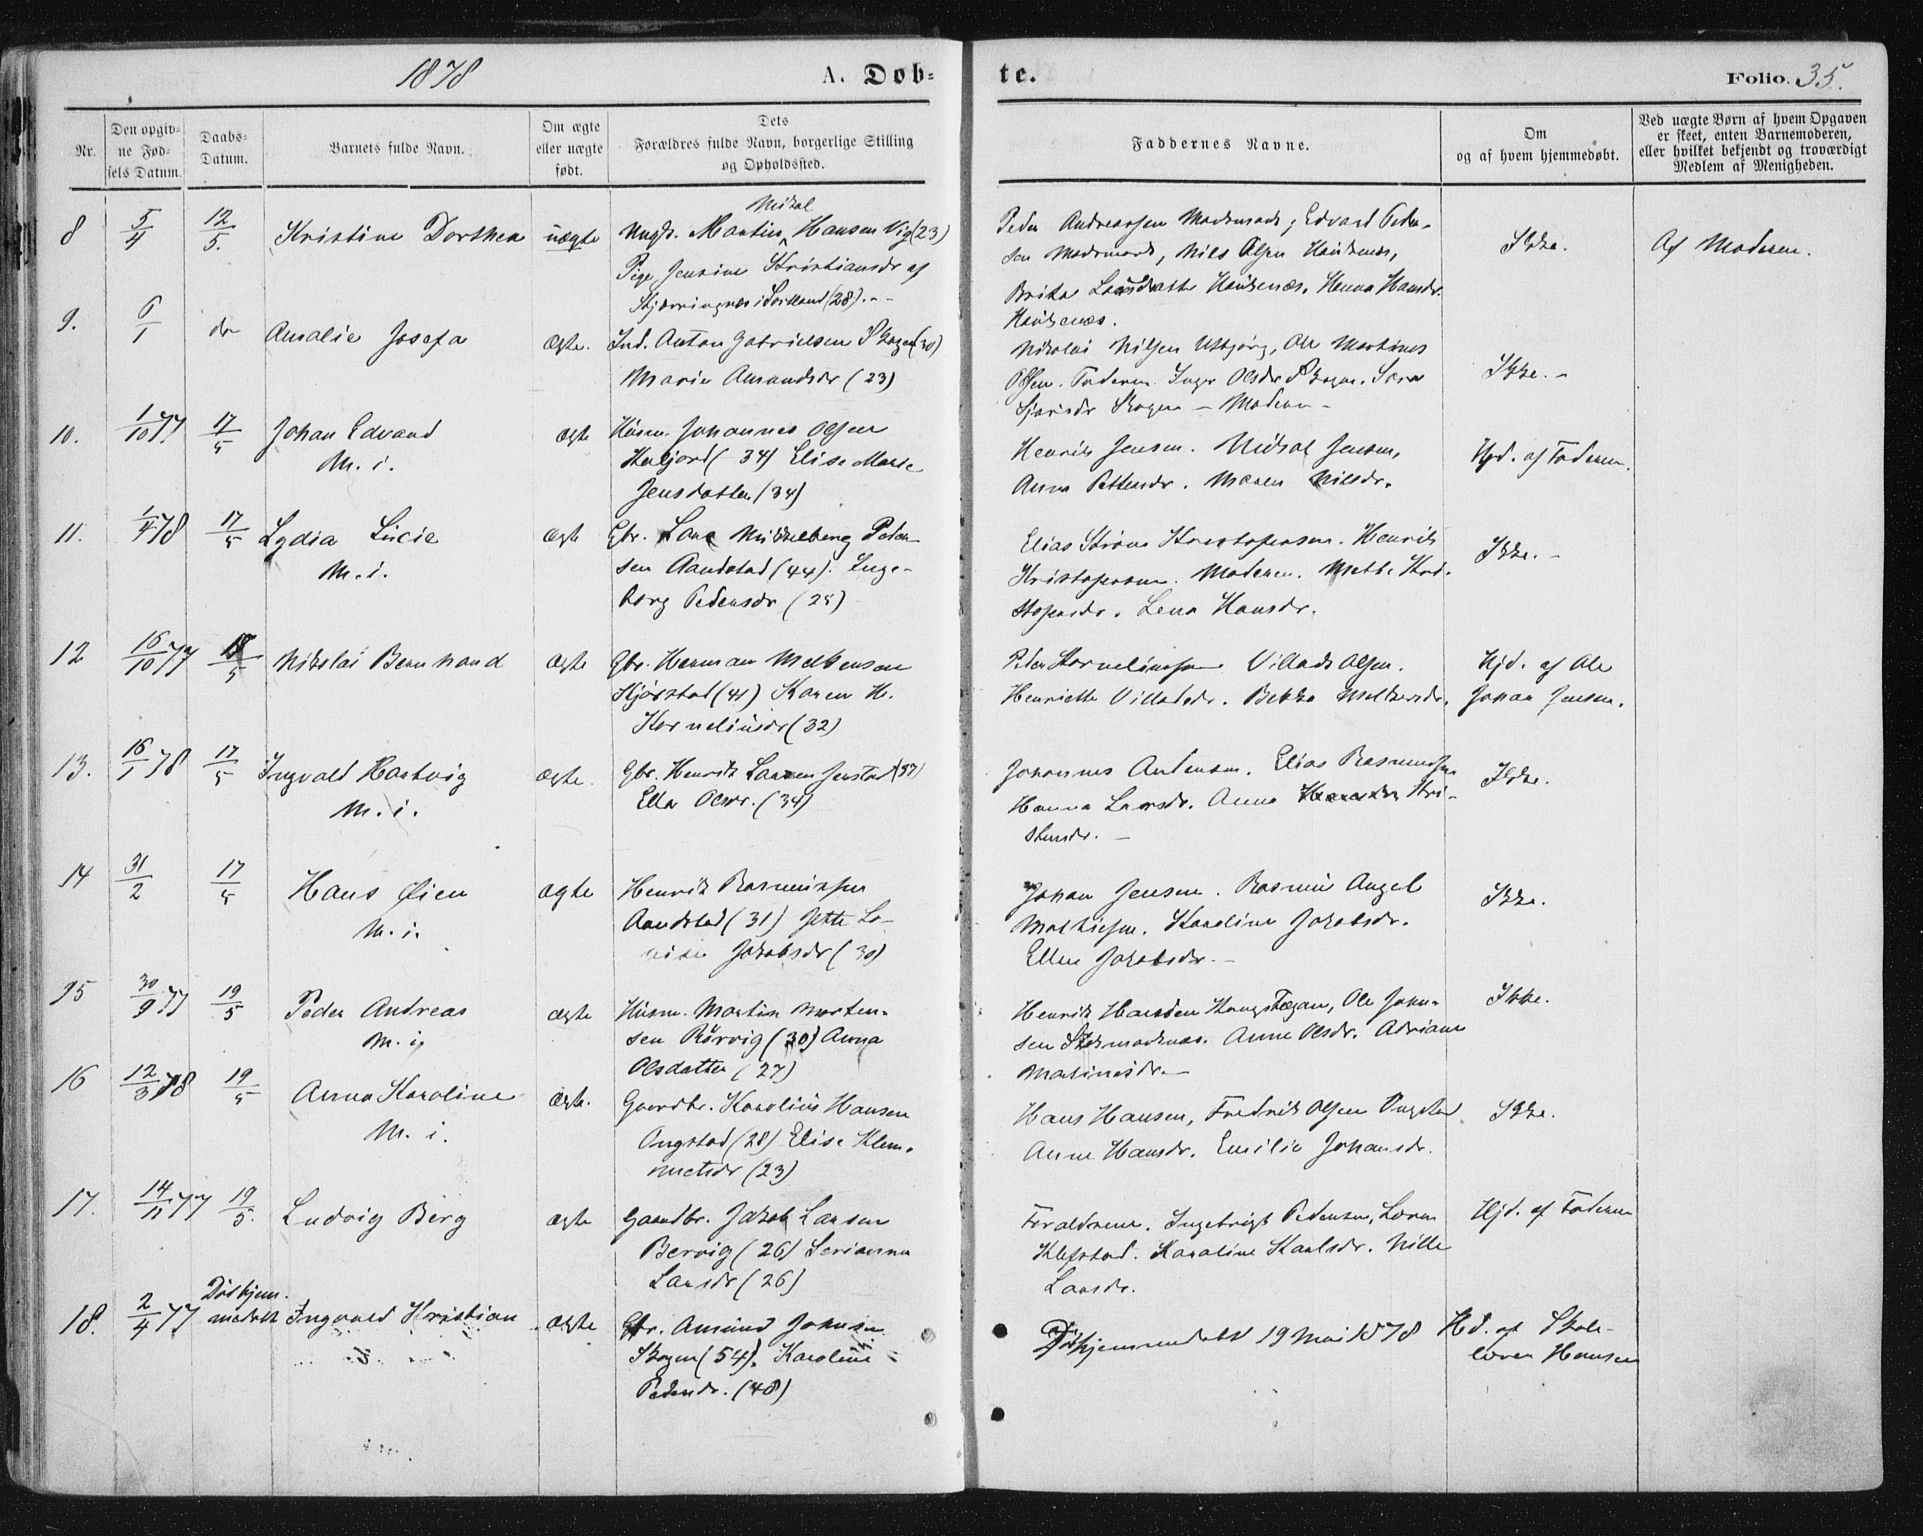 1878
A. Døb-
te.
Folio. 35.
Nr.
Den opgiv-
ne Fød-
sels Datum.
Daabs-
Datum.
Barnets fulde Navn.
Om ægte
eller uægte
født.
Dets
Forældres fulde Navn, borgerlige Stilling
og Opholdssted.
Faddernes Navne.
Om
og af hvem hjemmedøbt.
Ved uægte Børn af hvem Opgaven
er skeet, enten Barnemoderen,
eller hvilket bekjendt og troværdigt
Medlem af Menigheden.
8 5/4 12/5. Kristine Dorthea uægte
Mikal
Ungk. Martin Hansen Vig (23)
Pige Jensine Kristiansdr af
i Sortland (28).
Peder Andreassen Edvard Peder-
sen Nils Olsen
Hanna Hansdr.
Ikke.
Af Moderen.
9. 6/1 do Amalie Josefa ægte.
Ind. Anton Gabrielsen Skogen (30)
Marie Amundsdr (23)
Nikolai Nilsen Ole Martines
Olsen. Faderen. Inger Olsdr Skogen. Sara
Skogen – Moderen –
Ikke. –
10. 1/10 77 17/5 Johan Edvard ægte
M. i.
Husm. Johannes Olsen
(34) Elise Marie
Jensdatter (34)
Henrik Jensen. Mikal Jensen,
Anna Pettersdr. Maren Nilsdr.
Hjd. af Faderen.
11. 1/4 78 17/5 Lydia Lucie ægte
M. i.
Gbr. Lars Mikkelberg Peder-
sen Aandstad (44). Inge-
borg Pedersdr (25)
Elias Strøm Kristofersen. Henrik
Kristofersen. Moderen. Mette Kri-
stofersdr. Lena Hansdr.
Ikke. –
12 16/10 77 18/5 Nikolai Bernhard ægte
Gbr. Herman Melkersen
Kjørstad (41) Karen H.
Korneliusdr (32)
Peder Korneliussen Villads Olsen.
Henriette Villadsdr. Bekka Melkersdr.
Hjd. af Ole
Johan Jensen.
13. 16/1 78 17/5 Ingvald Hartvig ægte.
M. i.
Gbr. Henrik Larsen Jenstad (37)
Ella Olsdr. (34)
Johannes Andersen. Elias Rasmussen
Hanna Larsdr. Anna Kri-
stensdr. –
Ikke.
14 31/2 17/5 Hans Øien ægte
M. i.
Henrik Rasmussen
Aandstad (31) Jette Lo-
vise Jakobsdr (30)
Johan Jensen. Rasmus Angel
Mathisen. Karoline Jakobsdr.
Ellen Jakobsdr. –
Ikke.
15 30/9 77 19/5 Peder Andreas ægte
M. i.
Husm. Martin Morten-
sen Rørvig (30) Anna
Olsdatter (27)
Henrik Ole John-
sen Anne Olsdr. Adriane
Martinusdr. –
Ikke.
16 12/3 78 19/5 Anna Karoline ægte.
M. i.
Gaardbr. Karolius Hansen
Ongstad (28) Elise Klem-
metsdr (23)
Hans Hansen, Fredrik Olsen Ongstad
Anne Hansdr. Emilie Johansdr.
Ikke.
17. 14/11 77 19/5. Ludvig Berg ægte
Gaardbr. Jakob Larsen
Bervig (26) Serianna
Larsdr (26)
Forældrene. Ingebrigt Pedersen,
Karoline Karlsdr. Nille
Larsdr.
Hjd. af Faderen
18. 2/4 77
Dødhjem-
medøbt Ingvald Kristian ægte
Gbr. Amund Johnsen
Skogen (54). Karoline
Pedersdr. (48)
19 Mai 1878
Hd. af Skole-
lærer Hansen